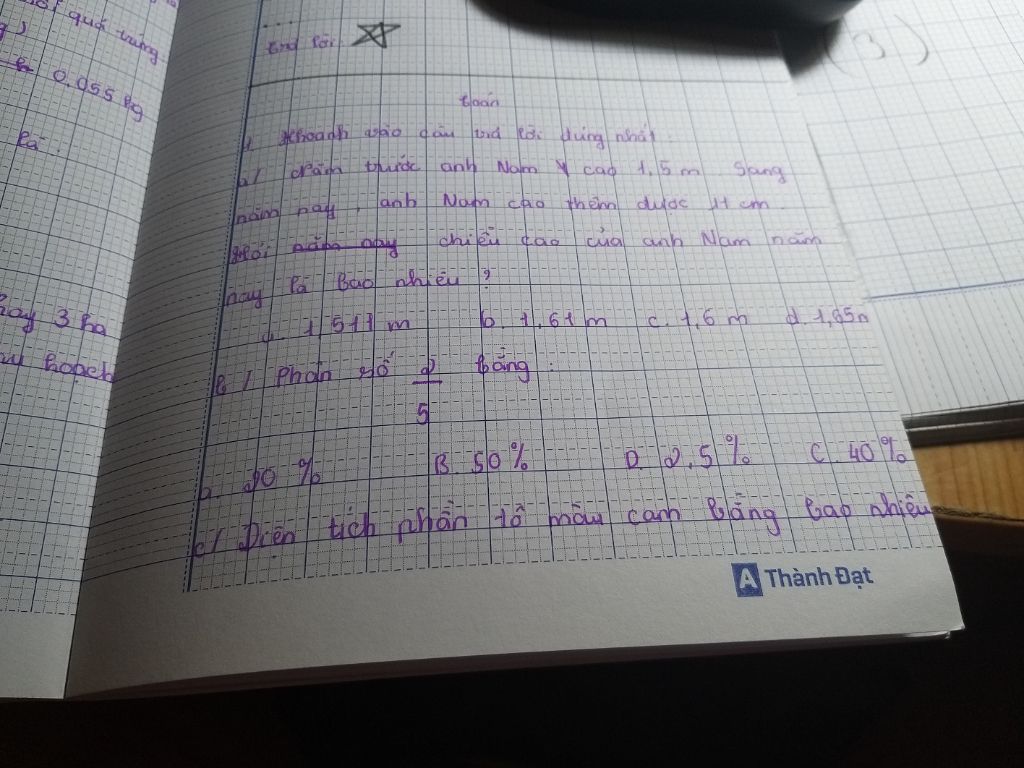 quả trứng
0,055 kg
là.
3 ha
trả lời:
(3)
toán
1. Khoanh vào câu trả lời đúng nhất.
a/ Năm trước anh Nam cao 1,5 m. Sang
năm nay, anh Nam cao thêm được 11 cm.
Hỏi năm nay chiều cao của anh Nam năm
nay là bao nhiêu?
a. 1,511 m b. 1,61 m c. 1,6 m d. 1,65m
b/ Phân số 2 bằng:
5
B. 50% D. 2,5% C. 40%
c/ Diện tích phần tô màu cam bằng bao nhiêu
A Thành Đạt